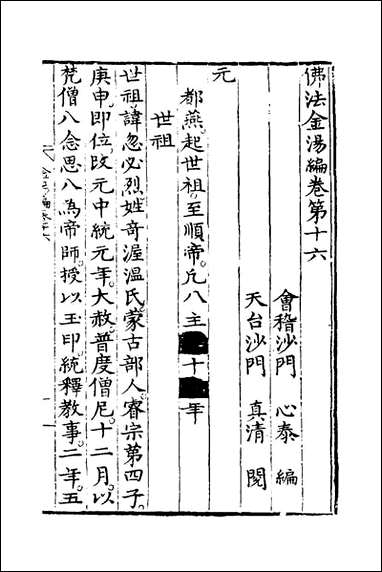 佛法金湯編卷第十六
會稽沙門　心泰　編
天台沙門　真清　閱
元
都燕起世祖至順帝凡八主十年
世祖
世祖諱忽必烈姓奇渥溫氏蒙古部人睿宗第四子
庚申即位改元中統元年大赦普度僧尼十二月以
梵僧八念思八為帝師授以玉印統釋教事二年五